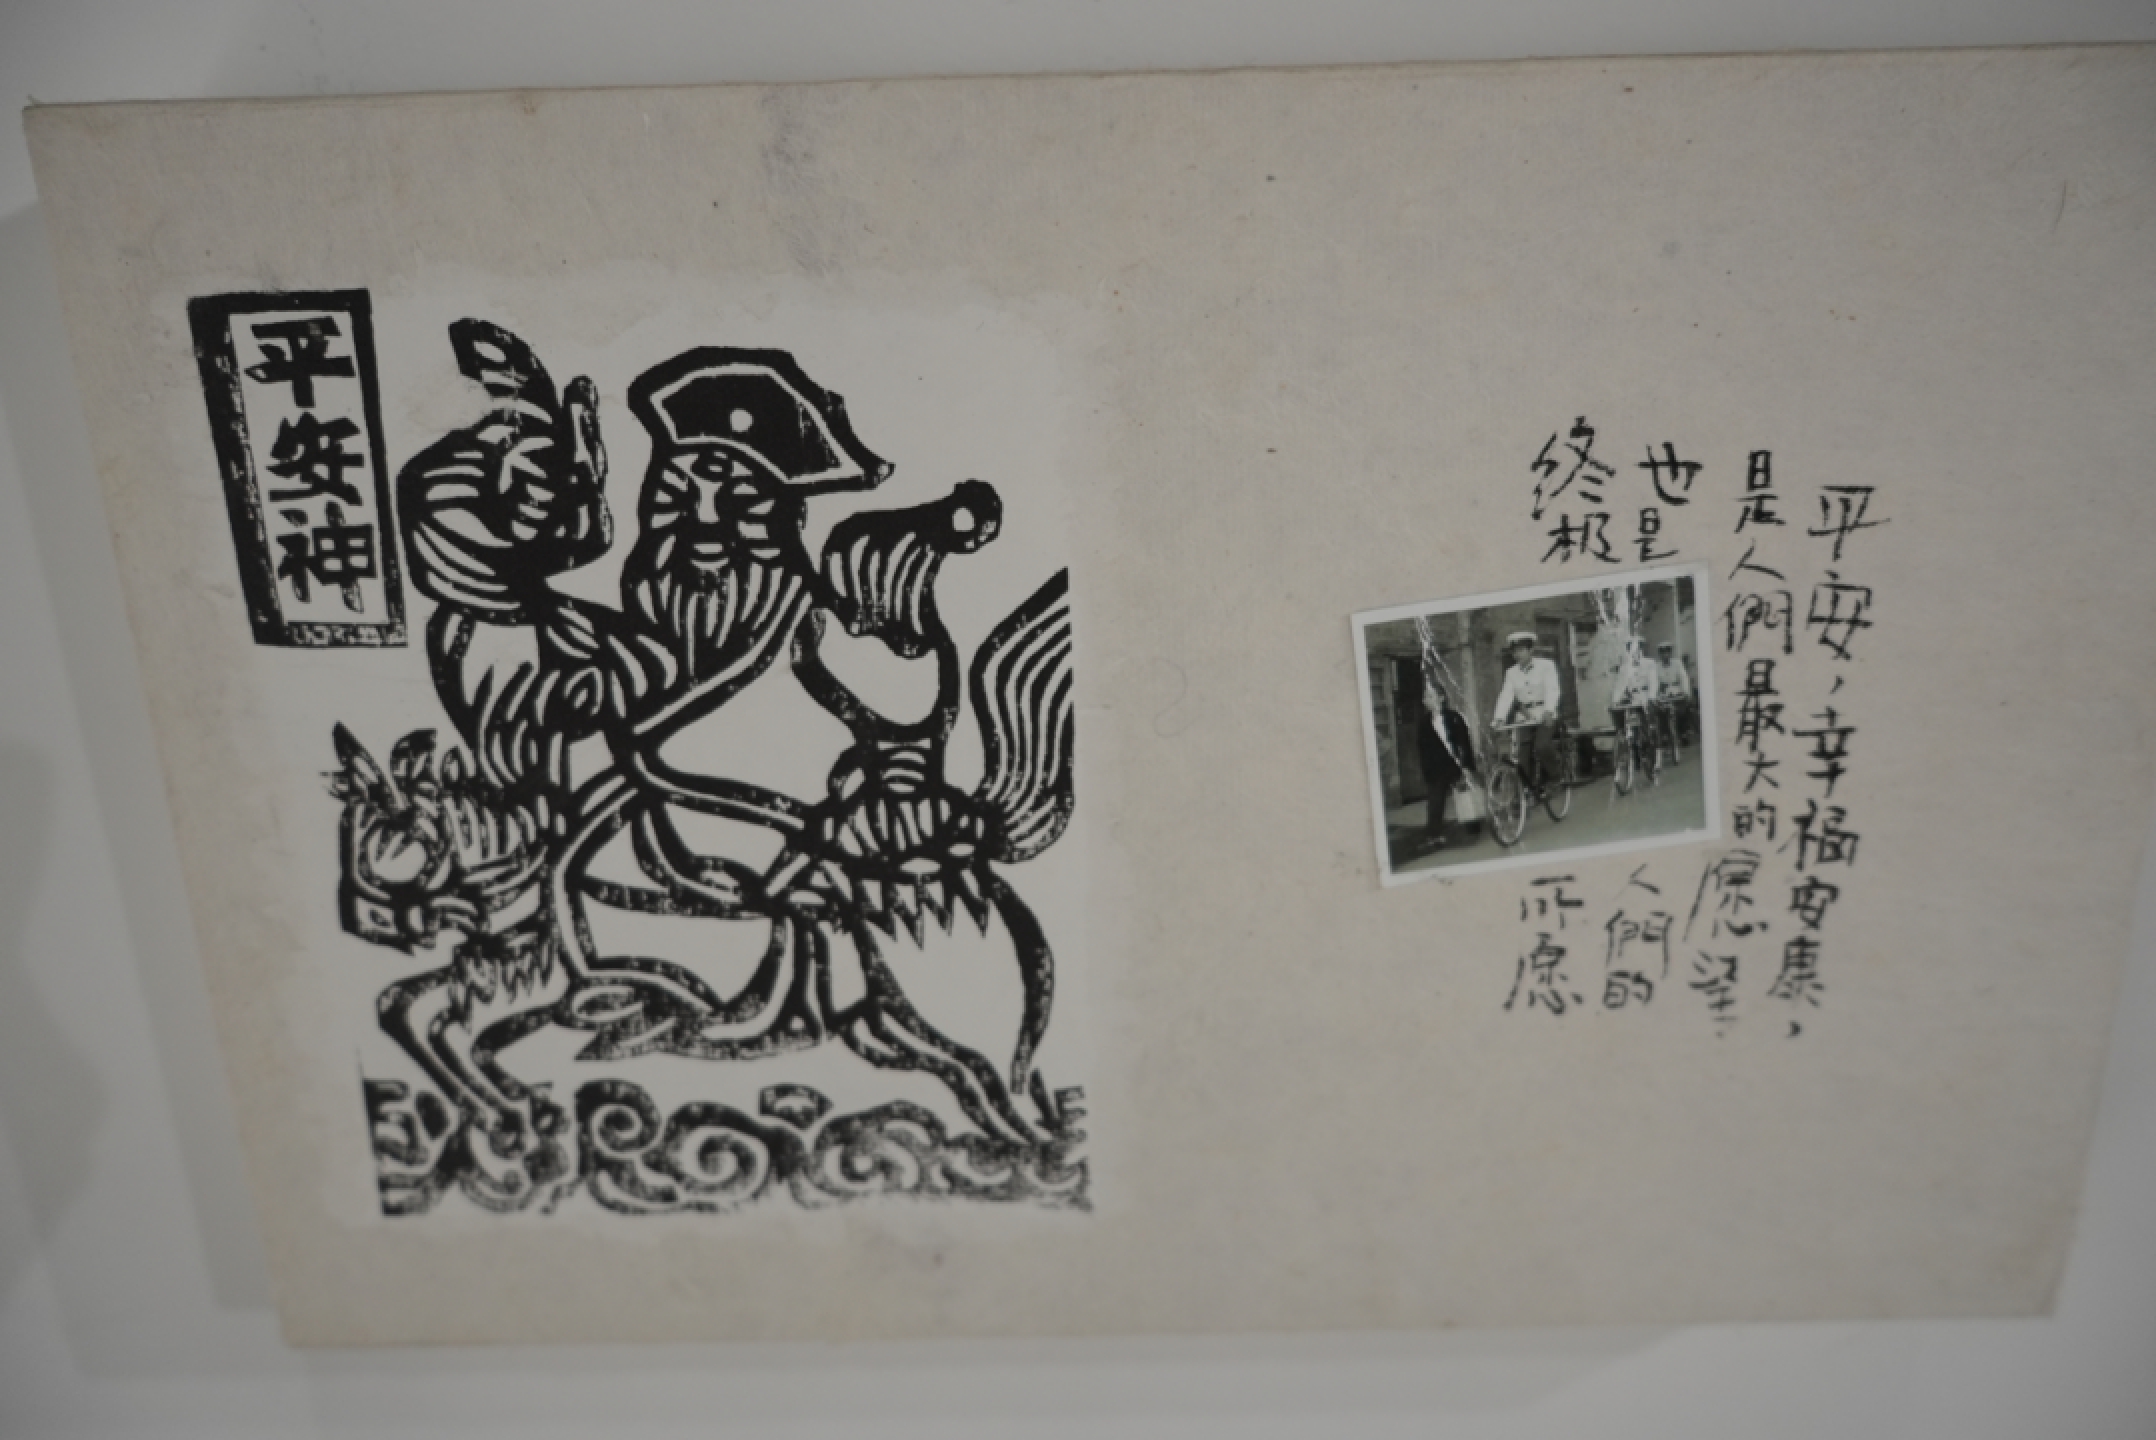 平安神
平安，幸福安康，
是人們最大的愿望
也是人們的
终极所愿